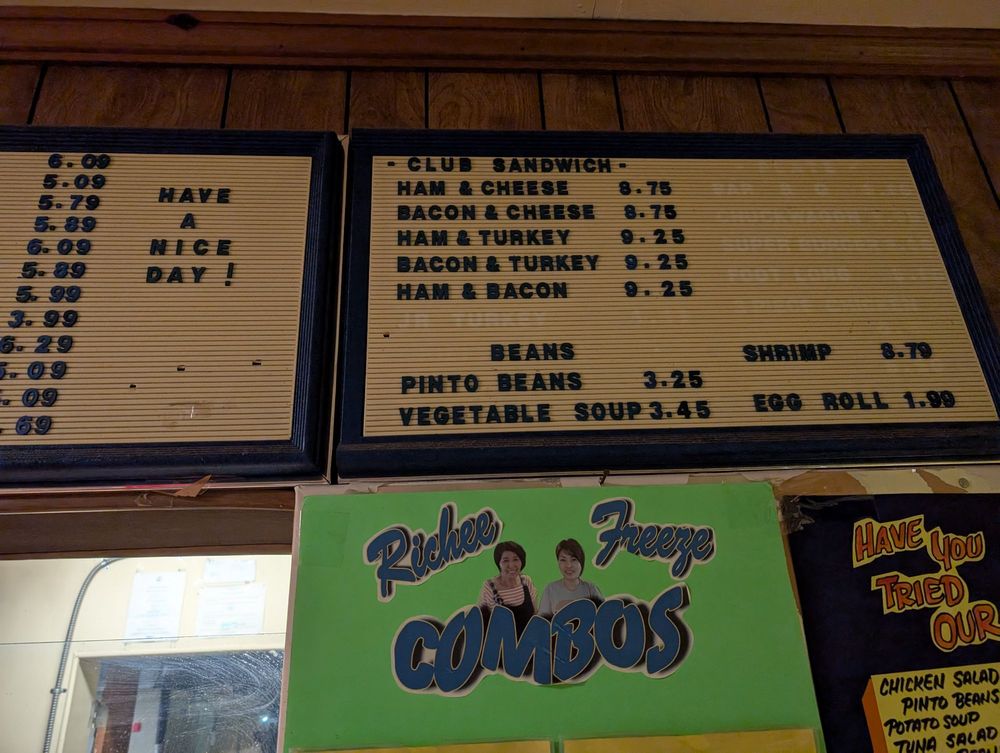 6.09
5.09
5.79
5.89
6.09
5.89
5.99
3.99
6.29
.09
.09
69
HAVE
A
NICE
DAY!
- CLUB SANDWICH -
HAM & CHEESE 8.75
BACON & CHEESE 8.75
HAM & TURKEY 9.25
BACON & TURKEY 9.25
HAM & BACON 9.25
BEANS
PINTO BEANS 3.25
VEGETABLE SOUP 3.45
SHRIMP 8.79
EGG ROLL 1.99
Richee Freeze
COMBOS
HAVE YOU
TRIED
OUR
CHICKEN SALAD
PINTO BEANS
POTATO SOUP
TUNA SALAD